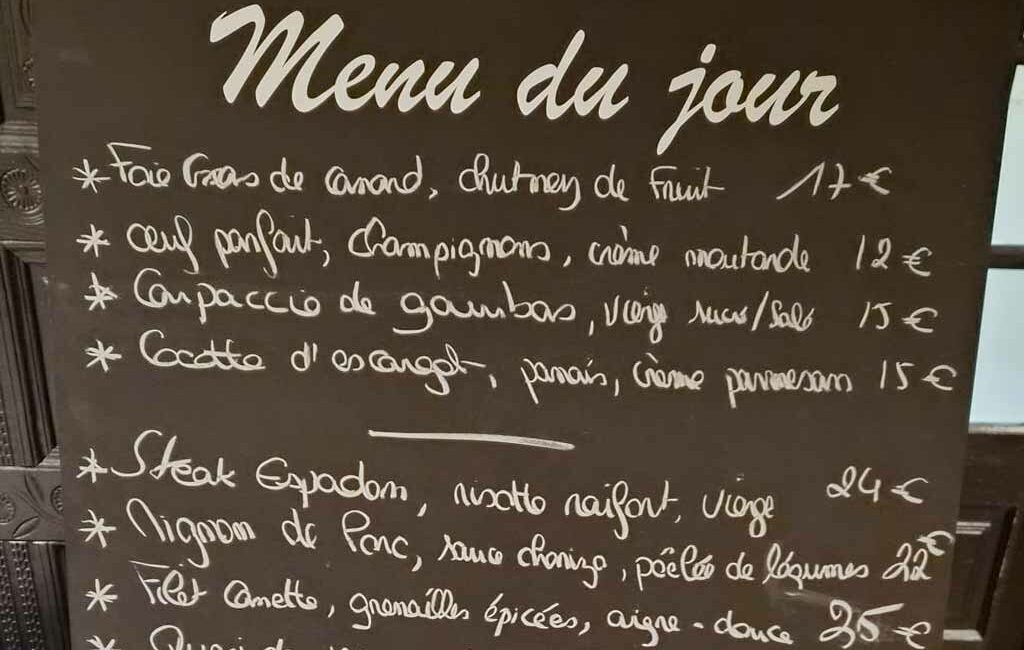 Menu du jour
* Foie Gras de canard, chutney de Fruit 17 €
* œuf parfait, champignons, crème moutarde 12 €
* Carpaccio de gambas, vierge sucré/salé 15 €
* Cocotte d'escargot, panais, crème parmesan 15 €
* Steak Espadon, risotto raifort, vierge 24 €
* Mignon de Porc, sauce chorizo, pôêlée de légumes 22 €
* Filet Canette, grenailles épicées, aigre-douce 25 €
* Quasi de